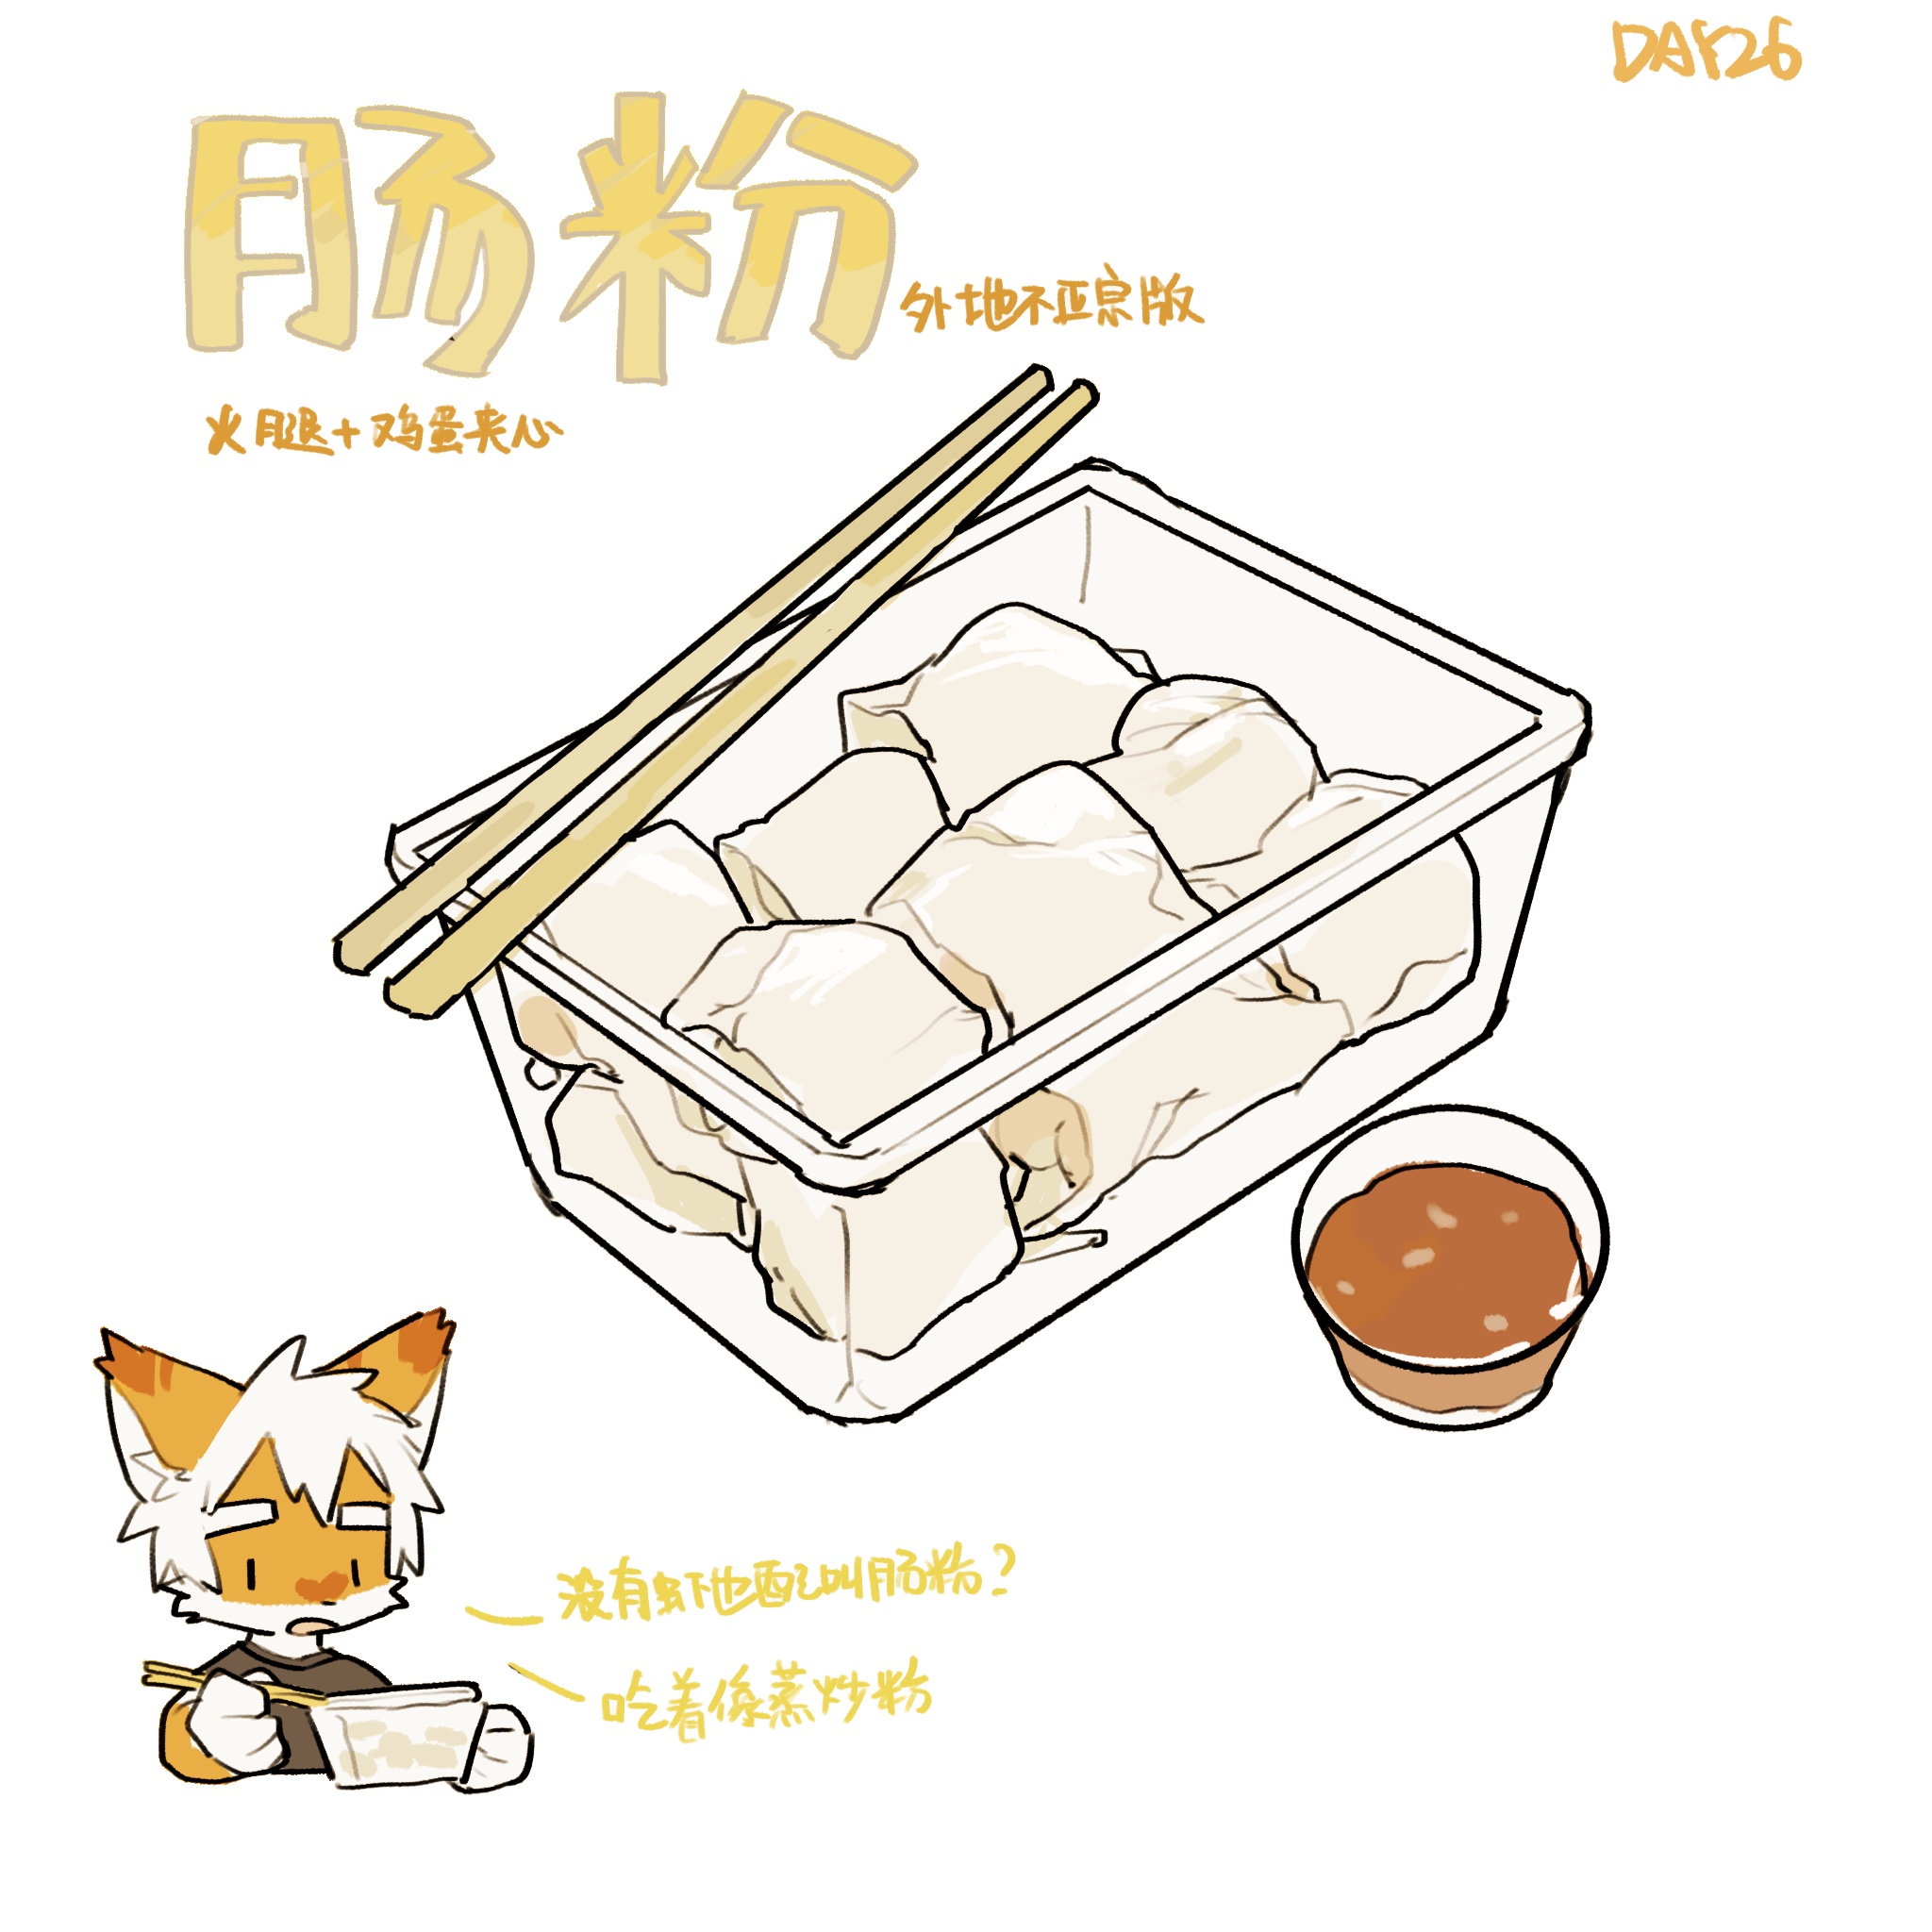 DAY26
肠粉
外地不正宗版
火腿+鸡蛋夹心
没有虾也配叫肠粉?
吃着像蒸炒粉